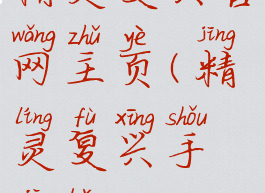 wǎng zhǔ yè jīng
网主页(精
líng fù xīng shǒu
灵复兴手